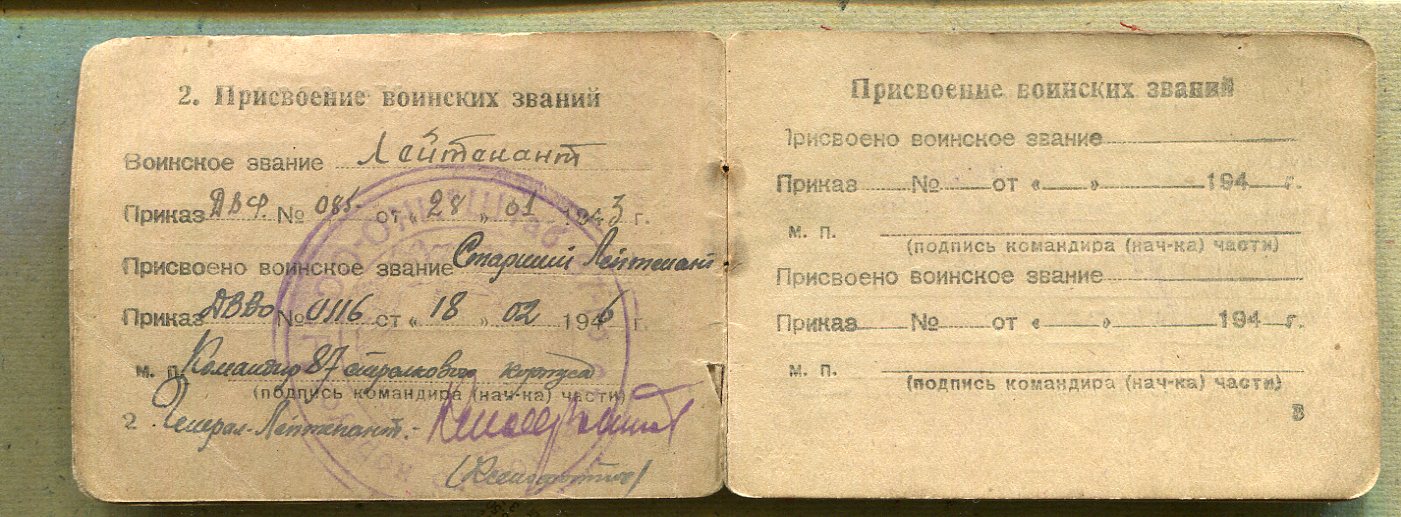 2. Присвоение воинских званий
Воинское звание Лейтенант
Приказ ДВФ № 085 от « 28 » 01 1943 г.
Присвоено воинское звание Старший Лейтенант
Приказ ДВВО № 0116 от « 18 » 02 1946 г.
м. п. Командир 87 стрелкового корпуса
(подпись командира (нач-ка) части)
2 Генерал-Лейтенант.-
Присвоение воинских званий
Присвоено воинское звание
Приказ № от « » 194 г.
м. п.
(подпись командира (нач-ка) части)
Присвоено воинское звание
Приказ № от « » 194 г.
м. п.
(подпись командира (нач-ка) части)
3